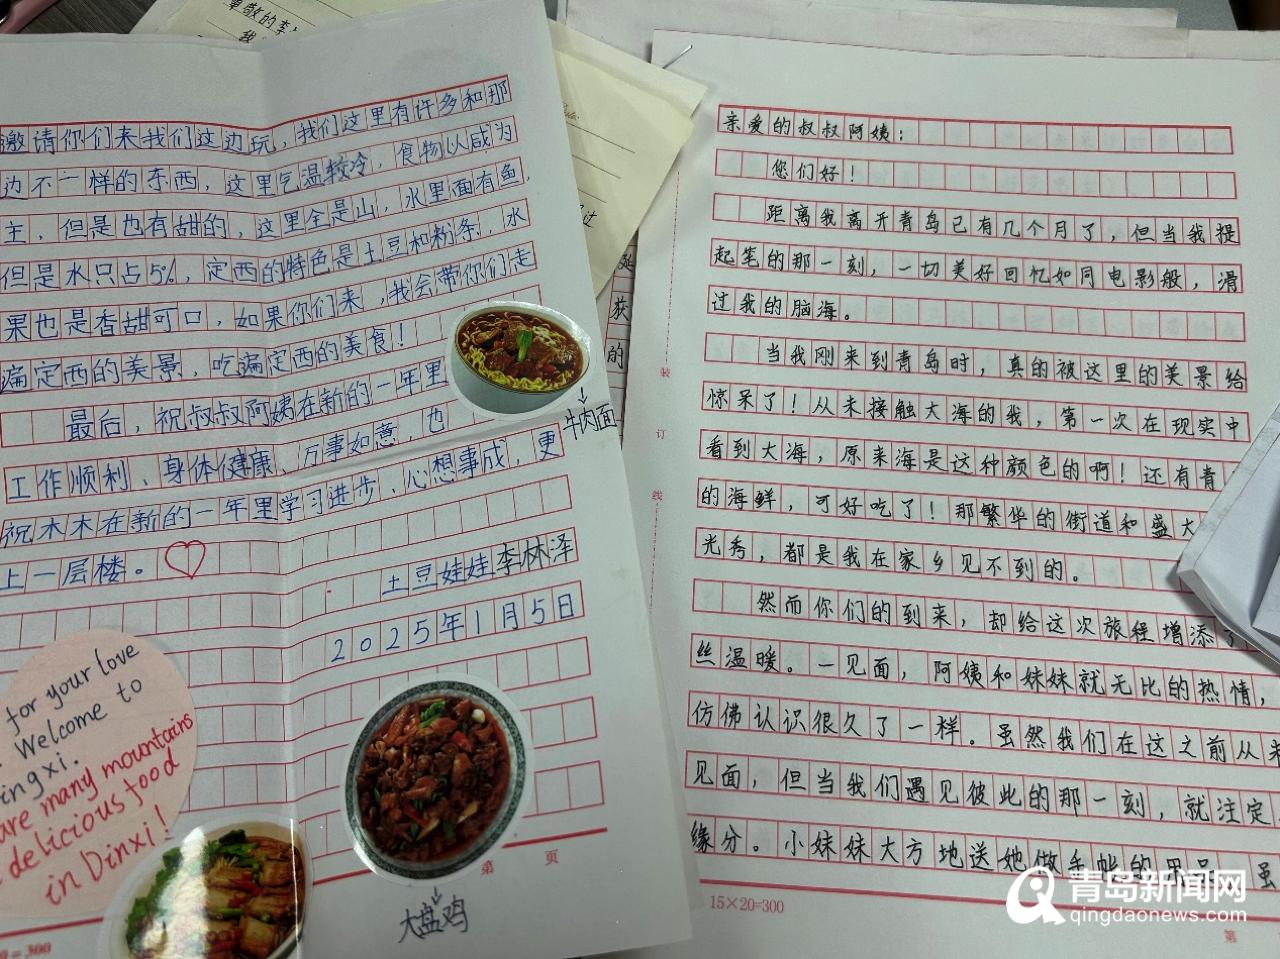 邀请你们来我们这边玩，我们这里有许多和那
边不一样的东西，这里气温较冷，食物以咸为
主，但是也有甜的，这里全是山，水里面有鱼，
但是水只占5%，定西的特色是土豆和粉条，水
果也是香甜可口，如果你们来，我会带你们走
遍定西的美景，吃遍定西的美食！
最后，祝叔叔阿姨在新的一年里
工作顺利、身体健康、万事如意，也
祝木木在新的一年里学习进步、心想事成，更
上一层楼。
土豆娃娃李林泽
2025年1月5日
牛肉面
大盘鸡
for your love
Welcome to
ingxi.
are many mountains
delicious food
in Dinxi!
第 页
=300
尊敬的李
我
获
的
装
订
线
亲爱的叔叔阿姨：
您们好！
距离我离开青岛已有几个月了，但当我提
起笔的那一刻，一切美好回忆如同电影般，滑
过我的脑海。
当我刚来到青岛时，真的被这里的美景给
惊呆了！从未接触大海的我，第一次在现实中
看到大海，原来海是这种颜色的啊！还有青
的海鲜，可好吃了！那繁华的街道和盛大
光秀，都是我在家乡见不到的。
然而你们的到来，却给这次旅程增添了
丝温暖。一见面，阿姨和妹妹就无比的热情，
仿佛认识很久了一样。虽然我们在这之前从未
见面，但当我们遇见彼此的那一刻，就注定
缘分。小妹妹大方地送她做手帐的用品，虽
15×20=300
第
青岛新闻网
qingdaonews.com